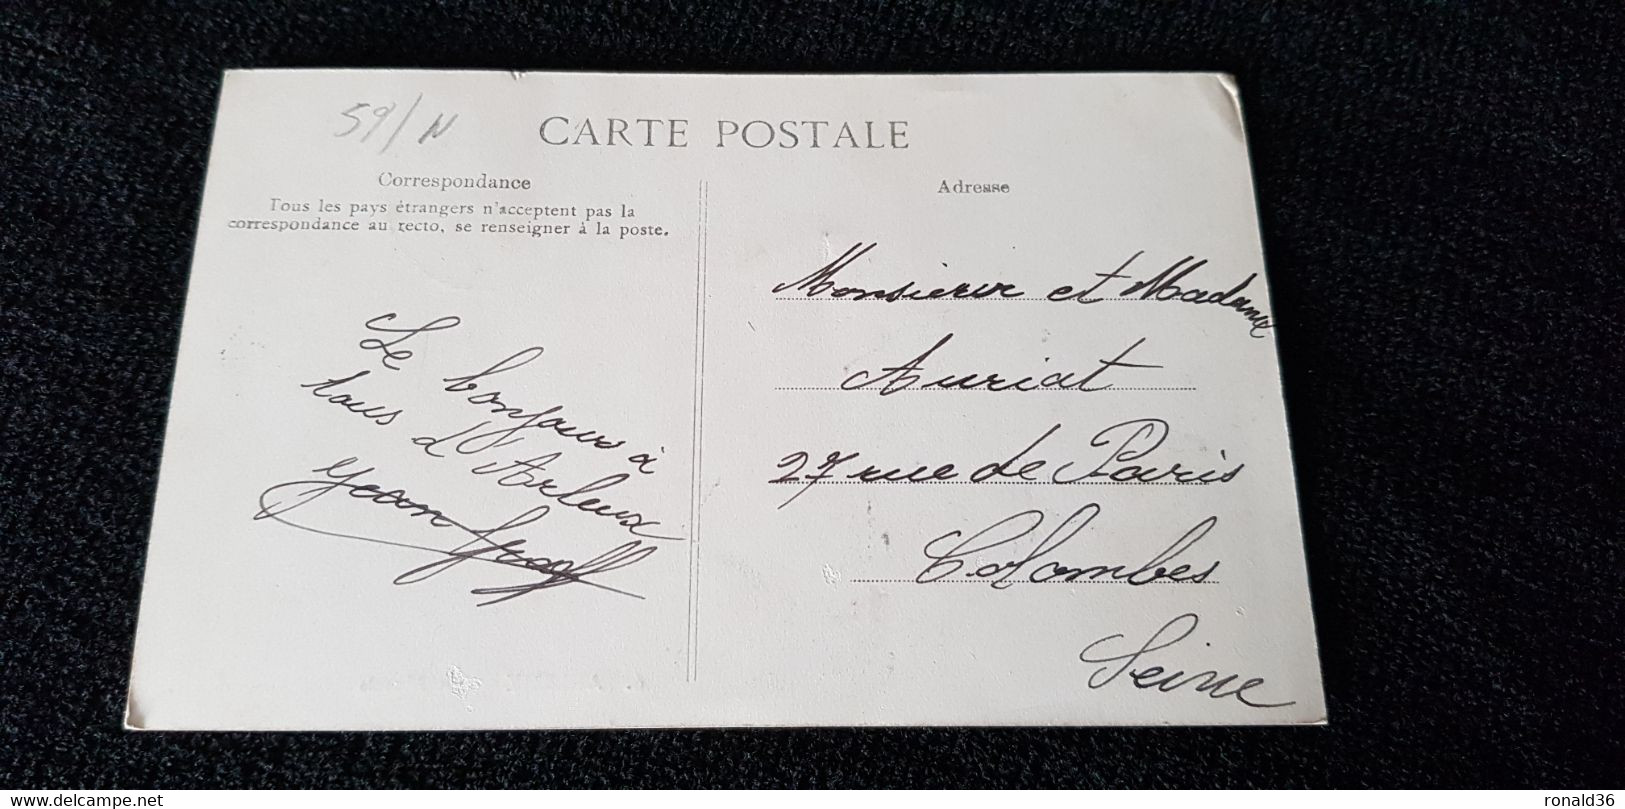 59/N
CARTE POSTALE
Correspondance
Tous les pays étrangers n'acceptent pas la
correspondance au recto, se renseigner à la poste.
Le bonjour à
tous d'Arleux
Adresse
Monsieur et Madame
Auriat
27 rue de Paris
Colombes
Seine
www.delcampe.net
ronald36